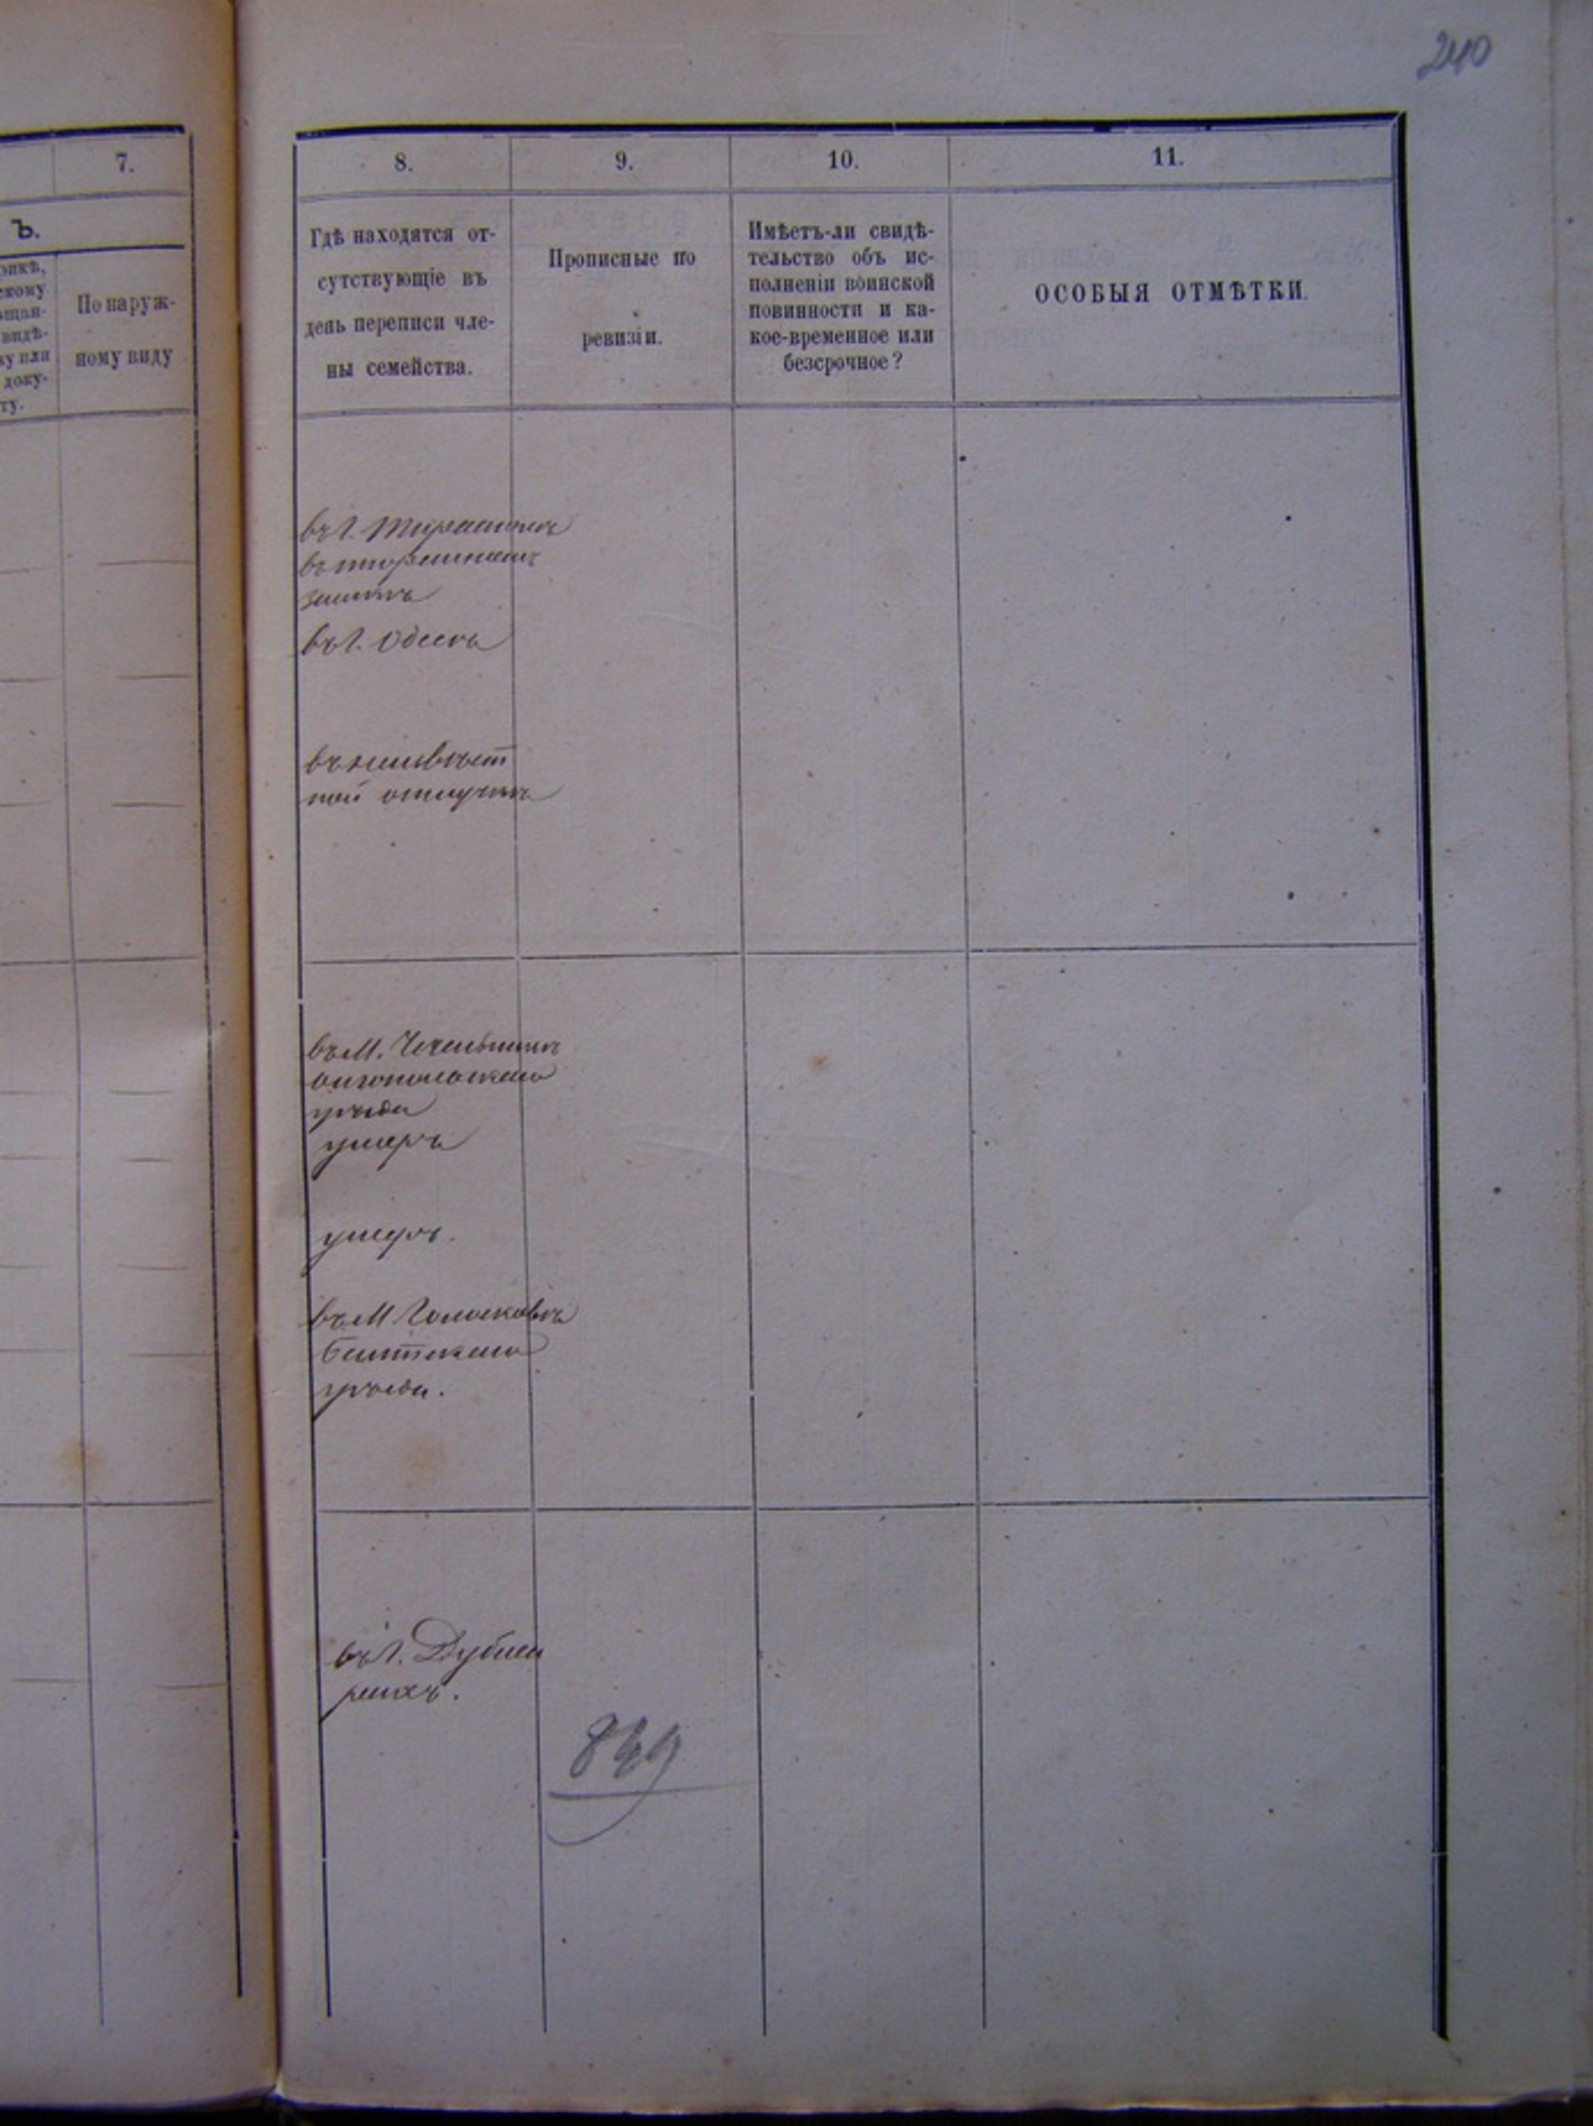 240
7.
Ъ.
По наруж-
ному виду
8.
9.
10.
11.
Гдѣ находятся от-
сутствующіе въ
день переписи чле-
ны семейства.
Прописные по
ревизіи.
Имѣетъ-ли свидѣ-
тельство объ ис-
полненіи воинской
повинности и ка-
кое-временное или
безсрочное?
ОСОБЫЯ ОТМѢТКИ.
въ г. Тирасполѣ
въ тюремномъ
замкѣ
въ г. Одессѣ
въ неизвѣст
ной отлучкѣ
въ М. Чечельникѣ
Ольгопольскаго
уѣзда
умеръ
умеръ.
въ М Голосковѣ
Балтскаго
уѣзда.
въ г. Дубоса
рахъ.
849